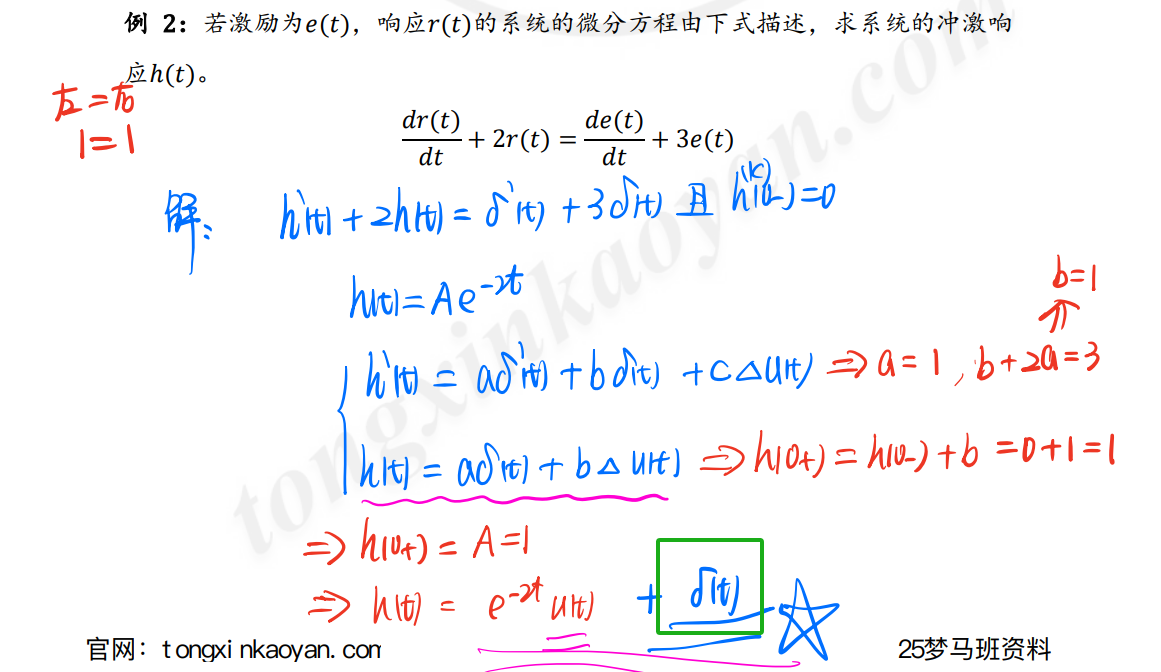 例 2：若激励为e(t)，响应r(t)的系统的微分方程由下式描述，求系统的冲激响
应h(t)。
左=右
1=1
dr(t)/dt + 2r(t) = de(t)/dt + 3e(t)
解： h'(t) + 2h(t) = δ'(t) + 3δ(t) 且 h^(k)(0-)=0
h(t) = Ae^-2t
b=1
⇑
h'(t) = aδ'(t) + bδ(t) + c△u(t) ⇒ a=1, b+2a=3
h(t) = aδ(t) + b△u(t) ⇒ h(0+) = h(0-) + b = 0+1 = 1
⇒ h(0+) = A = 1
⇒ h(t) = e^-2t u(t) + δ(t)
官网：tongxinkaoyan.com 25梦马班资料
tongxinkaoyan.com